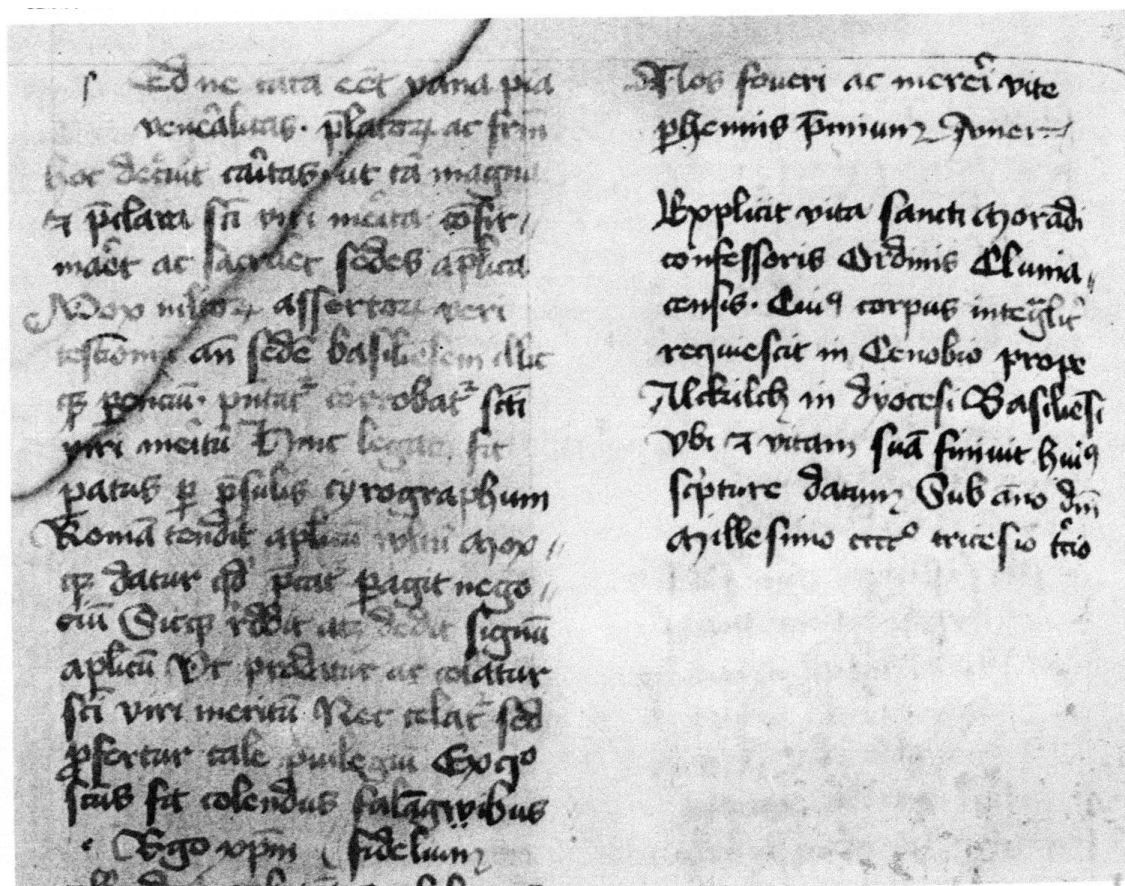 Ed ne tata eēt vana pia
venēalitas · p̄latoꝝ ac frm̄
hoc dec̄uit caritas ut tā magna
⁊ p̄clara sc̄i viri mēita cōfir
maret ac sacraret sedes aplica
Mox assertoꝝ veri
an̄ sedē basiliesem illic
corrobat᷑ sc̄i
viri meritū Hinc legatꝰ fit
patus ꝑ p̄sulis cyrographum
Romā tendit aplicū Mox
qꝫ datur qd̄ petit ꝑagit nego
ciū Sicqꝫ atqꝫ dedit signū
aplicū Ut prodatur ac colatur
sc̄i viri meritū Nec celat᷑ sed
ꝓfertur tale p̍uilegiū Ex quo
sc̄us fit colendus
Ergo xp̄m fideliū
Nos foveri ac mereri vite
ꝑhennis p̄miuꝫ Amen
Explicit vita sancti Morādi
confessoris Ordinis Clunia
censis · Cuiꝰ corpus integ̃lit᷑
requiescit in Cenobio prope
Altkilch in dyocesi Basiliēsi
vbi ⁊ vitam suā finivit huiꝰ
sc̍pture datum Sub āno dn̄i
Millesimo ccccº tricesīo t̄cio